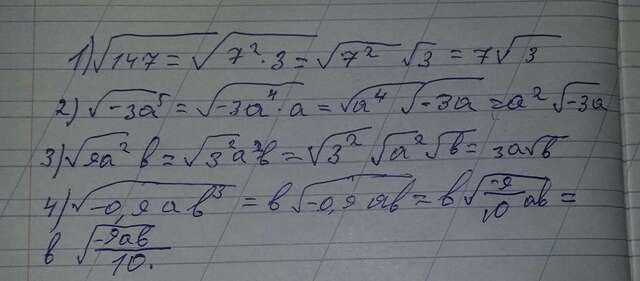 1) √147 = √7²·3 = √7² √3 = 7√3
2) √-3a⁵ = √-3a⁴·a = √a⁴ √-3a = a² √-3a
3) √9a² b = √3²a²b = √3² √a² √b = 3a√b
4) √-0,9ab³ = b√-0,9ab = b√-9/10 ab =
b √-9ab/10.